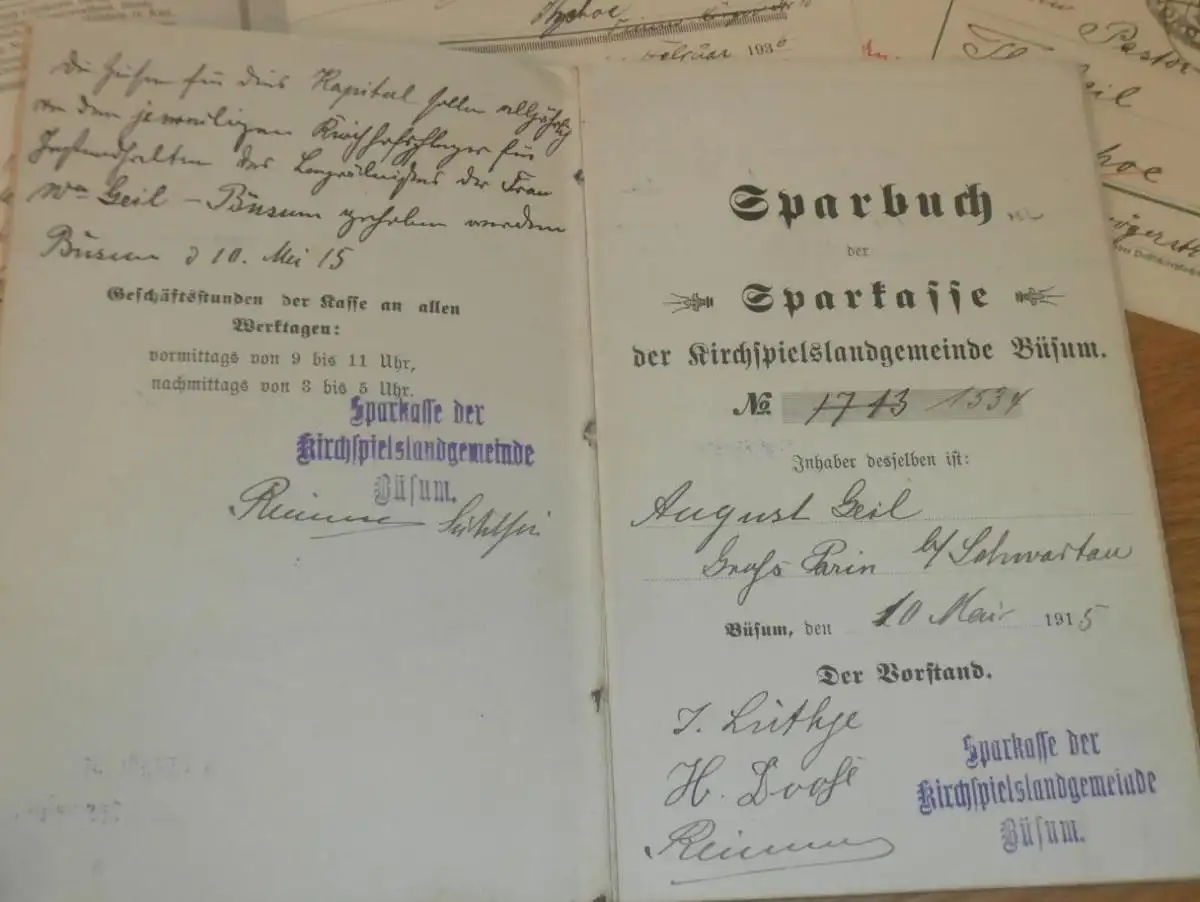 Itzehoe
Februar 1936
Pastor
Geil
hoe
Die Zinsen für dies Kapital sollen alljährlich
an den jeweiligen Kirchhofspfleger für
Instandhalten des Begräbnisses der Frau
Wwe Geil - Büsum gegeben werden
Büsum d 10. Mai 15
Geschäftsstunden der Kasse an allen
Werktagen:
vormittags von 9 bis 11 Uhr,
nachmittags von 3 bis 5 Uhr.
Sparkasse der
Kirchspielslandgemeinde
Büsum.
Sparbuch
der
Sparkasse
der Kirchspielslandgemeinde Büsum.
No 1713 1534
Inhaber desselben ist:
August Geil
Groß Parin b/ Schwartau
Büsum, den 10 Mai 1915
Der Vorstand.
J. Lüthje
H. Doose
Sparkasse der
Kirchspielslandgemeinde
Büsum.